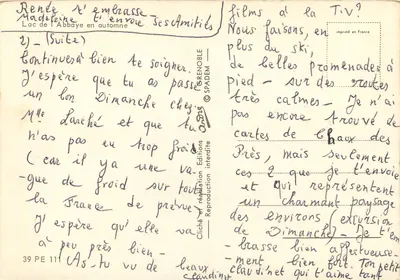 Renée t'embrasse
Madeleine t'envoie ses Amitiés
Lac de l'Abbaye en automne
2)- (Suite)
Continues à bien te soigner.
J'espère que tu as passé
un bon Dimanche chez
Mlle Larché et que tu
n'as pas eu trop froid
(car il y a une va-
gue de froid sur toute
la France de prévue)
J'espère qu'elle va
à peu près bien -
As-tu vu de beaux
39 PE 111
Cliché - réalisation Editions
Reproduction interdite
GRENOBLE
© SPADEM
reproduit en France
films à la T.V?
Nous faisons, en
plus du ski,
de belles promenades à
pied - sur des routes
très calmes - Je n'ai
pas encore trouvé de
cartes de Chaux des
Prés, mais seulement
ces 2 que je t'envoie
et qui représentent
un charmant paysage
des environs (excursion
de Dimanche) - Je t'em-
brasse bien affectueuse-
ment bien fort. Ton petit
claudinet qui t'aime tant
Claudinet